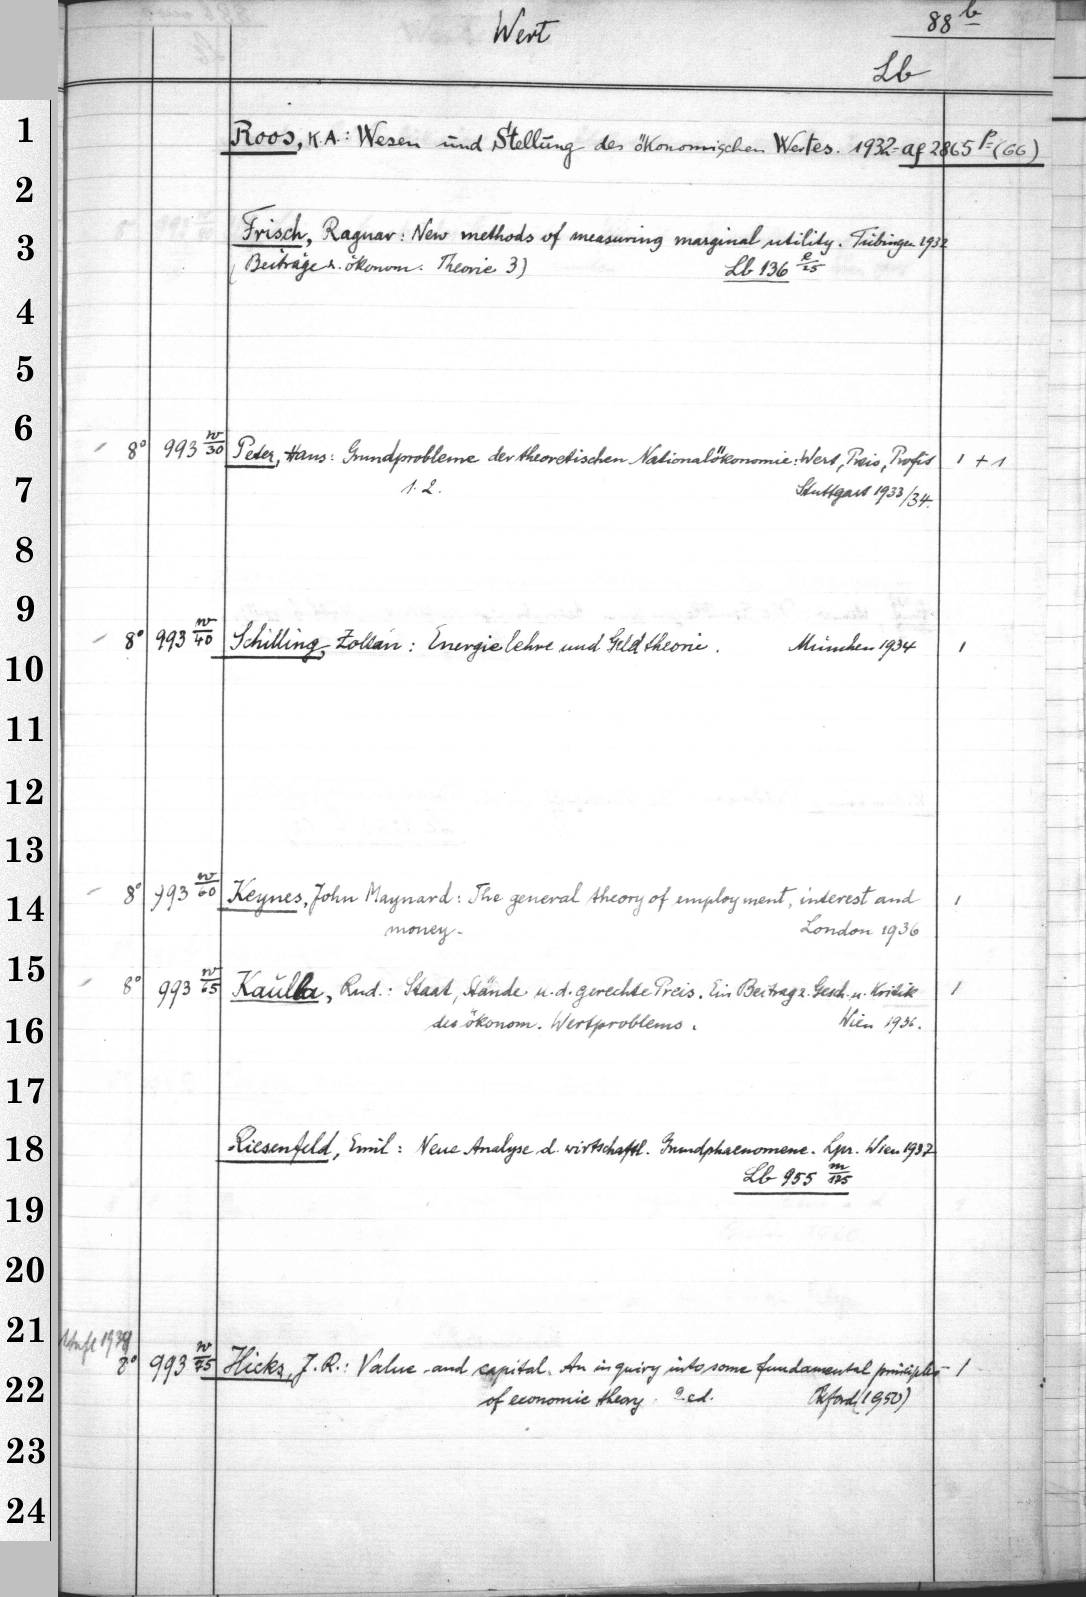 Wert
88 b
Lb
1 Roos, K.A.: Wesen und Stellung des ökonomischen Wertes. 1932 = af 2865 P= (66)
2
3 Frisch, Ragnar: New methods of measuring marginal utility. Tübingen 1932
(Beiträge z. ökonom. Theorie 3) Lb 136 e/25
4
5
6 8° 993 w/30 Peter, Hans: Grundprobleme der theoretischen Nationalökonomie: Wert, Preis, Profit 1 + 1
7 1. 2. Stuttgart 1933/34.
8
9
8° 993 w/40 Schilling, Zoltán: Energielehre und Geldtheorie. München 1934 1
10
11
12
13
14 8° 993 w/60 Keynes, John Maynard: The general theory of employment, interest and 1
money. London 1936
15 8° 993 w/65 Kaulla, Rud.: Staat, Stände u. d. gerechte Preis. Ein Beitrag z. Gesch. u. Kritik 1
16 des ökonom. Wertproblems. Wien 1936.
17
18 Riesenfeld, Emil: Neue Analyse d. wirtschaftl. Grundphaenomene. Lpz. Wien 1937
Lb 955 m/125
19
20
21 1939
8° 993 w/75 Hicks, J. R.: Value and capital. An inquiry into some fundamental principles 1
22 of economic theory. 2. ed. Oxford (1950)
23
24